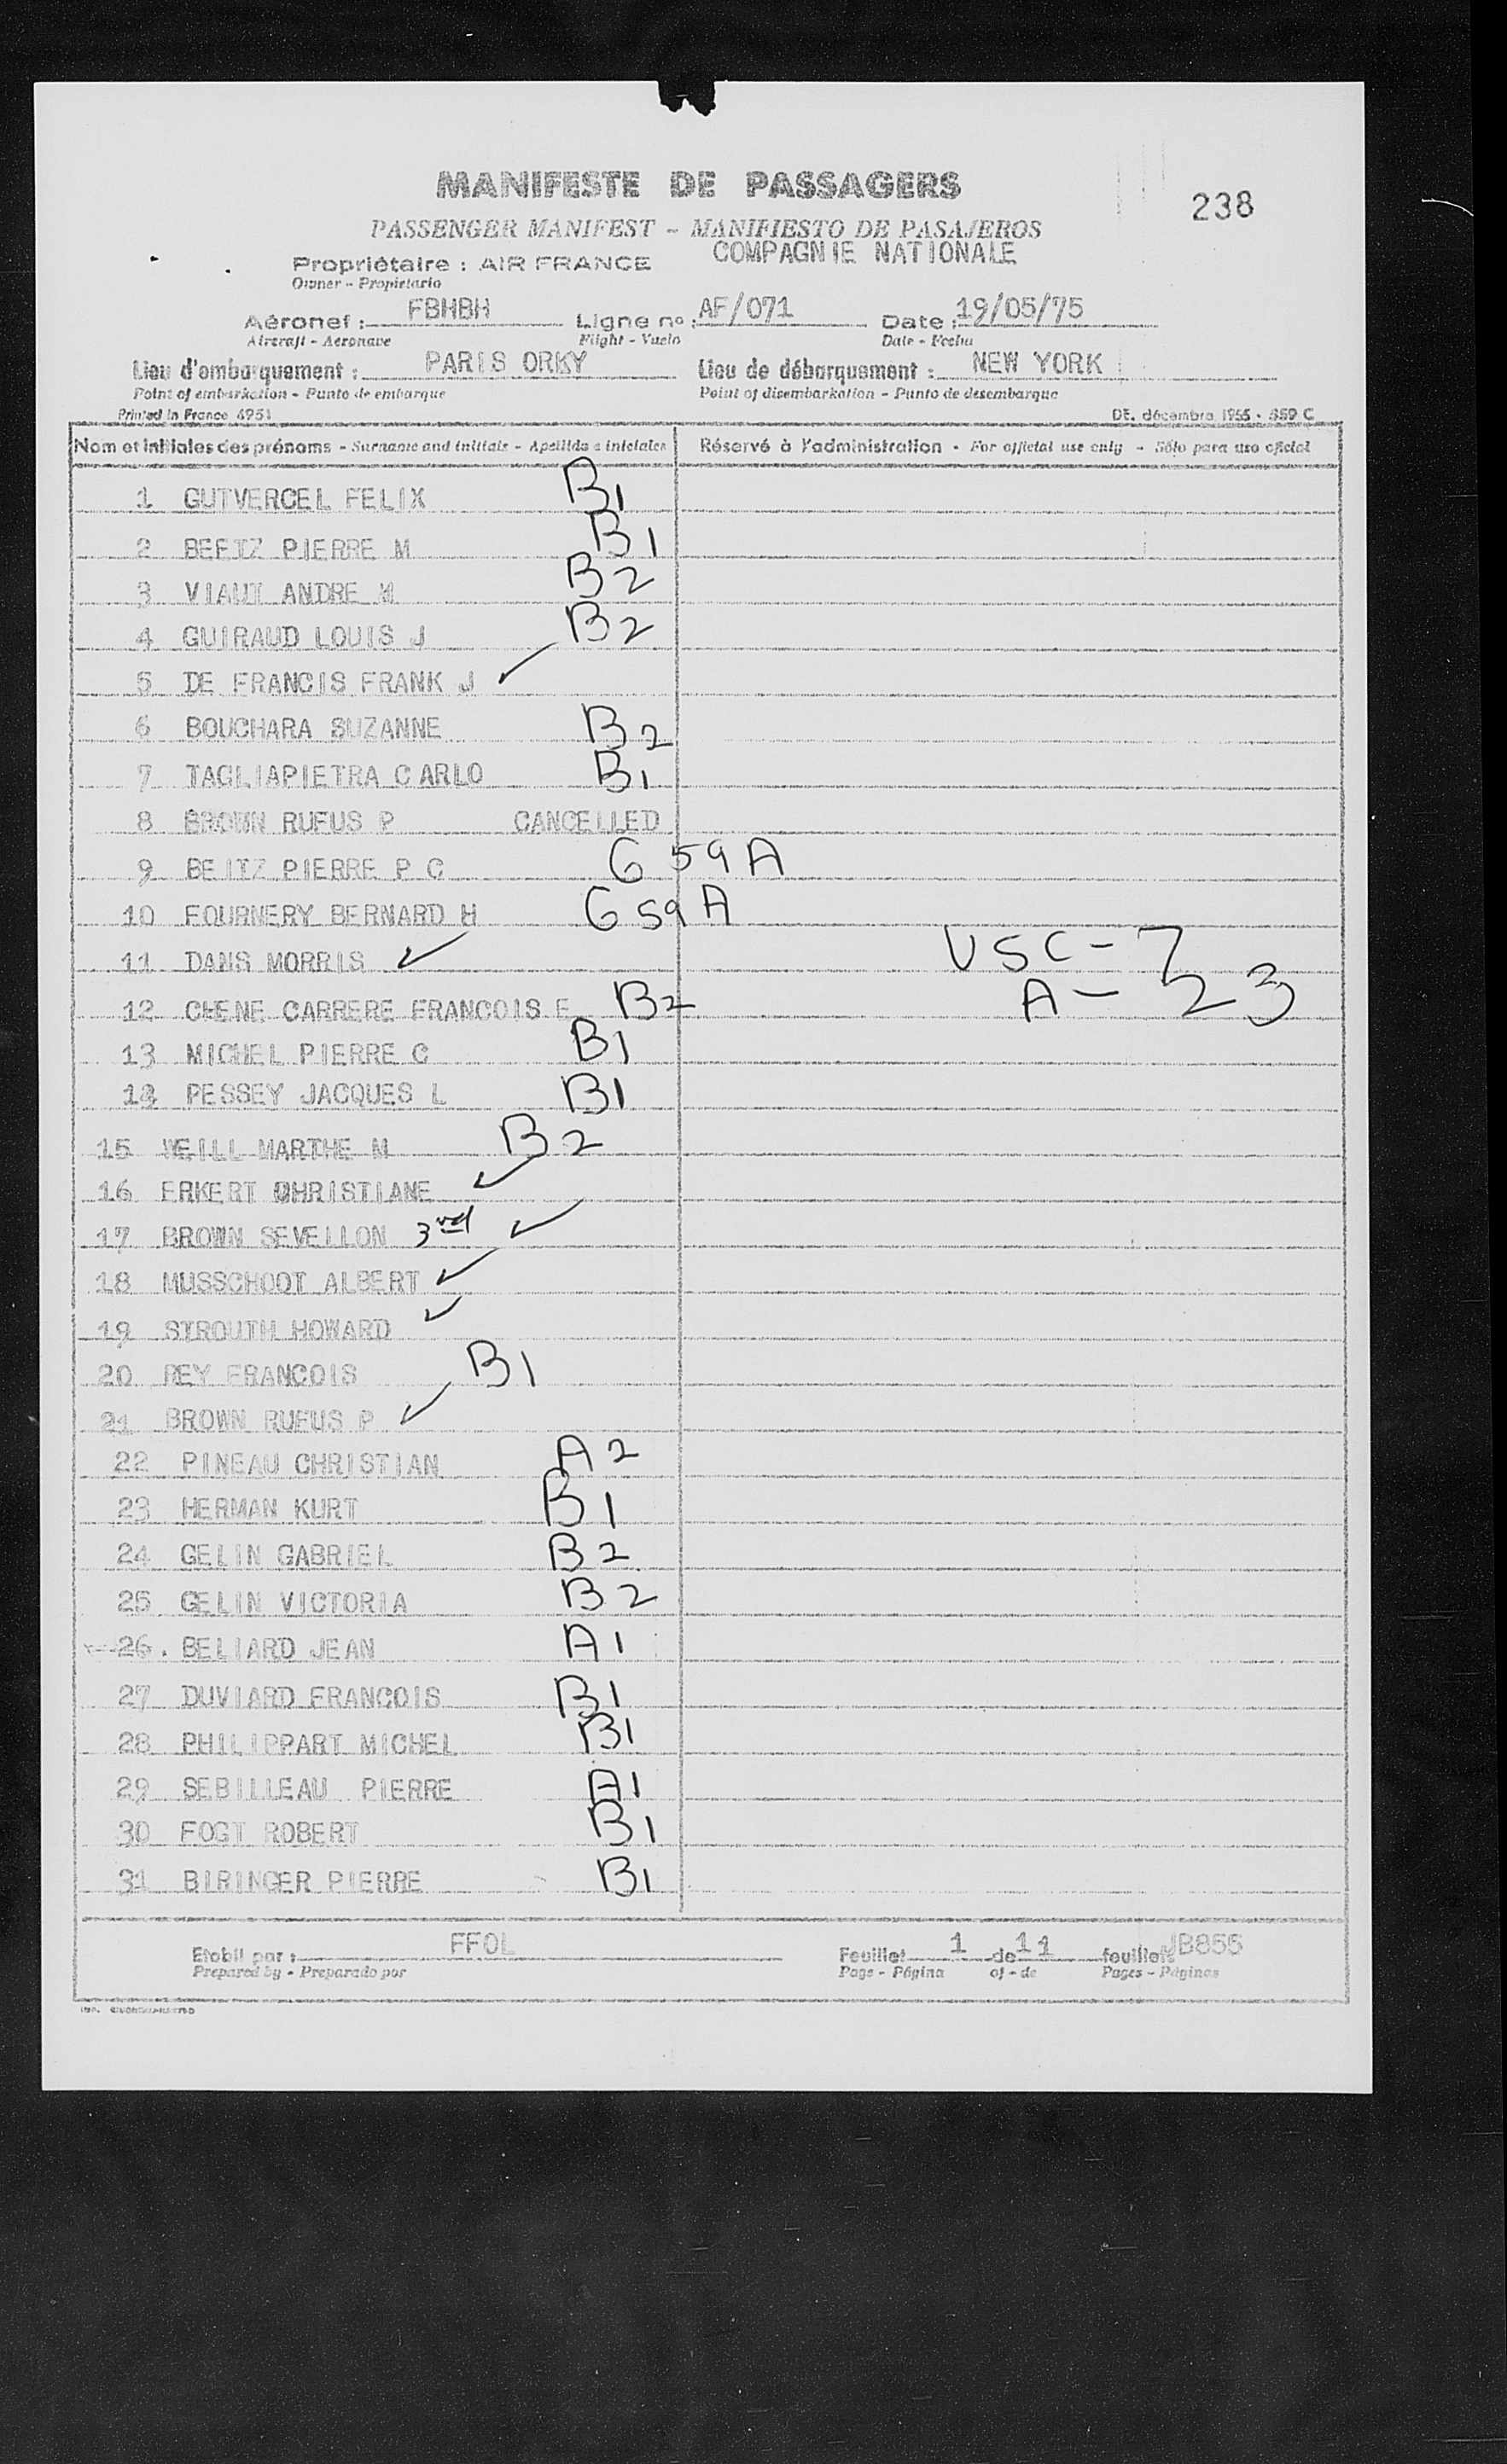 MANIFESTE DE PASSAGERS
238
PASSENGER MANIFEST - MANIFIESTO DE PASAJEROS
Propriétaire : AIR FRANCE COMPAGNIE NATIONALE
Owner - Propietario
Aéronef : FBHBH Ligne no : AF/071 Date : 19/05/75
Aircraft - Aeronave Flight - Vuelo Date - Fecha
Lieu d'embarquement : PARIS ORKY Lieu de débarquement : NEW YORK
Point of embarkation - Punto de embarque Point of disembarkation - Punto de desembarque
Printed in France 4951 DE. décembre 1955 - 359 C
Nom et initiales des prénoms - Surname and initials - Apellido e iniciales Réservé à l'administration - For official use only - Sólo para uso oficial
1 GUTVERCEL FELIX B1
2 BEETZ PIERRE M B1
3 VIAUT ANDRE M B2
4 GUIRAUD LOUIS J B2
5 DE FRANCIS FRANK J ✓
6 BOUCHARA SUZANNE B2
7 TAGLIAPIETRA CARLO B1
8 BROWN RUFUS P CANCELLED
9 BEITZ PIERRE P C G59A
10 FOURNERY BERNARD H G59A
11 DANS MORRIS ✓ USC - 7
12 CHENE CARRERE FRANCOIS E B2 A - 23
13 MICHEL PIERRE C B1
14 PESSEY JACQUES L B1
15 WEILL MARTHE M B2
16 ERKERT CHRISTIANE ✓
17 BROWN SEVELLON 3rd ✓
18 MUSSCHOOT ALBERT ✓
19 STROUTH HOWARD ✓
20 REY FRANCOIS B1
21 BROWN RUFUS P ✓
22 PINEAU CHRISTIAN A2
23 HERMAN KURT B1
24 GELIN GABRIEL B2
25 GELIN VICTORIA B2
26. BELIARD JEAN A1
27 DUVIARD FRANCOIS B1
28 PHILIPPART MICHEL B1
29 SEBILLEAU PIERRE A1
30 FOGT ROBERT B1
31 BIRINGER PIERRE B1
Etabli par : FFOL Feuillet 1 de 11 feuillets JB855
Prepared by - Preparado por Page - Página of - de Pages - Páginas